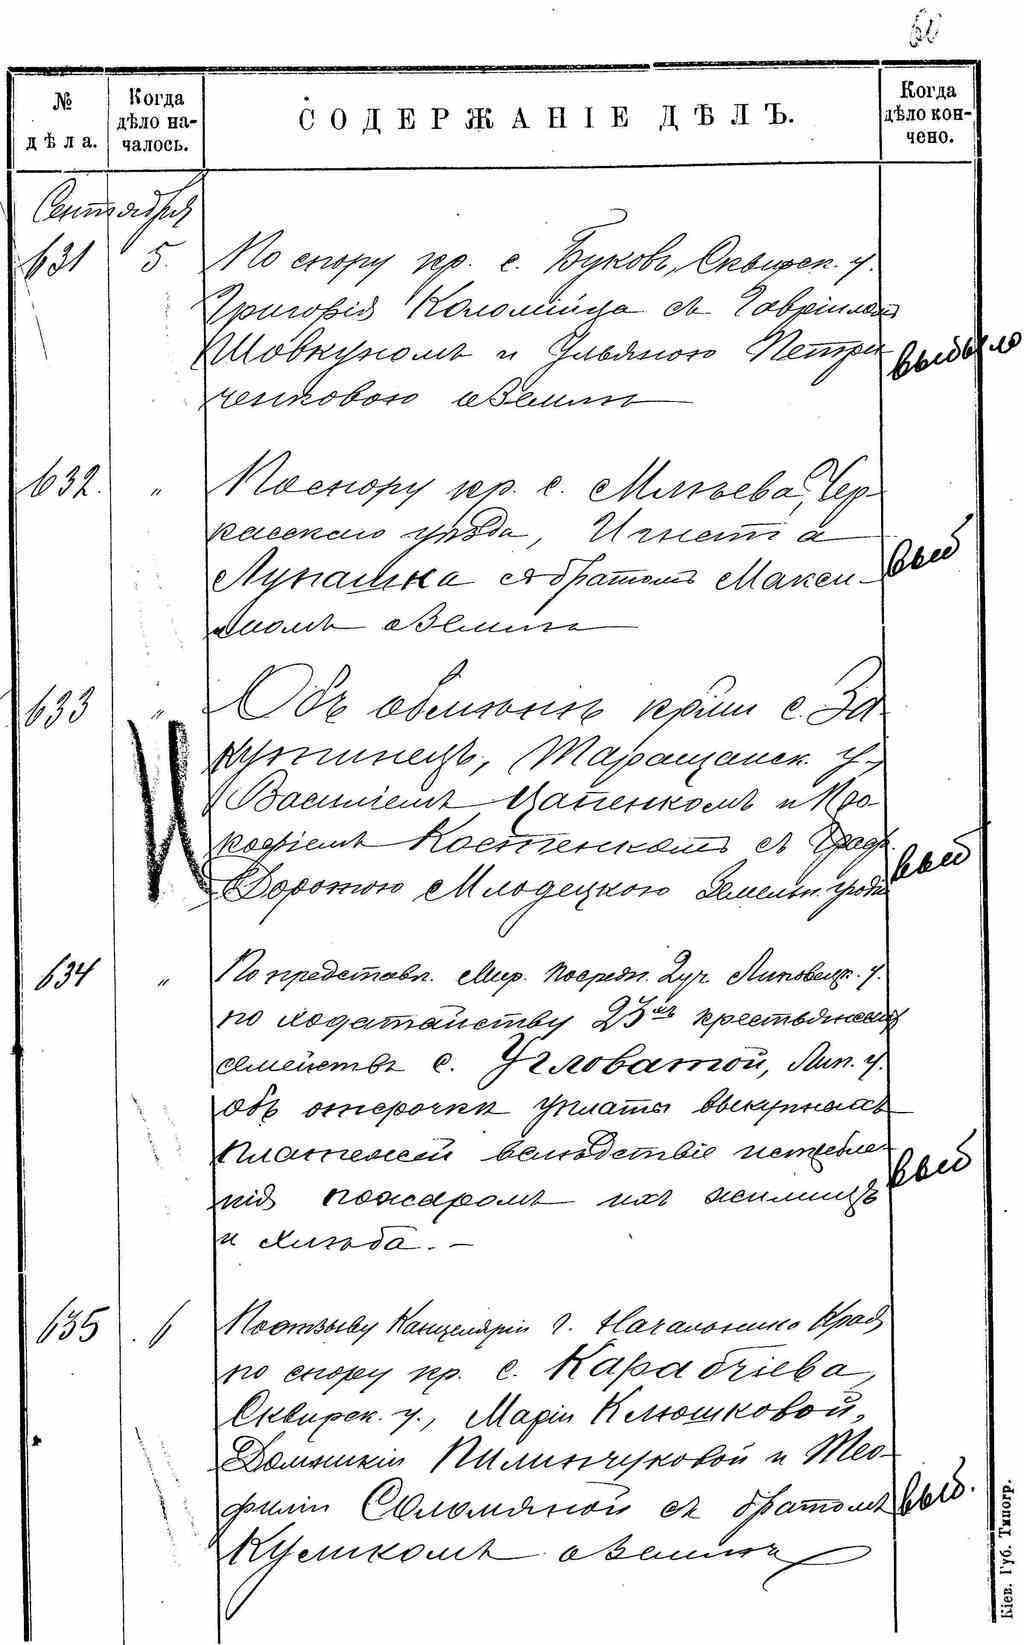 60
№ дѣла.
Когда дѣло началось.
СОДЕРЖАНІЕ ДѢЛЪ.
Когда дѣло кончено.
Сентября
631 5. По спору кр. с. Буковъ, Сквирск. у.
Григорія Коломійца съ Гавріиломъ
Шовкуномъ и Ульяною Петри-
ченковою о землѣ
выбыло
632. " По спору кр. с. Млѣева, Чер-
касскаго уѣзда, Игната
Лупашка съ братомъ Макси-
момъ о землѣ
выб
633 " Объ обмѣнѣ кр-ми с. За-
кутинецъ, Таращанск. у.,
Василіемъ Цапенкомъ и Про-
кофіемъ Костенкомъ съ Граф.
Доротою Младецкою земельн. угодій
выб
634 " По представл. Мир. Посредн. 2 уч. Липовецк. у.
по ходатайству 23хъ крестьянскихъ
семействъ с. Угловатой, Лип. у.
объ отсрочки уплаты выкупныхъ
платежей вслѣдствіе истребле-
нія пожаромъ ихъ жилищъ
и хлѣба. —
выб
635 6 По отзыву Канцеляріи г. Начальника Края
по спору кр. с. Карабчіева,
Сквирск. у., Маріи Клюшковой,
Домникіи Пилипчуковой и Тео-
филіи Соломяной съ братомъ
Куликомъ о землѣ
выб.
Кіев. Губ. Типогр.